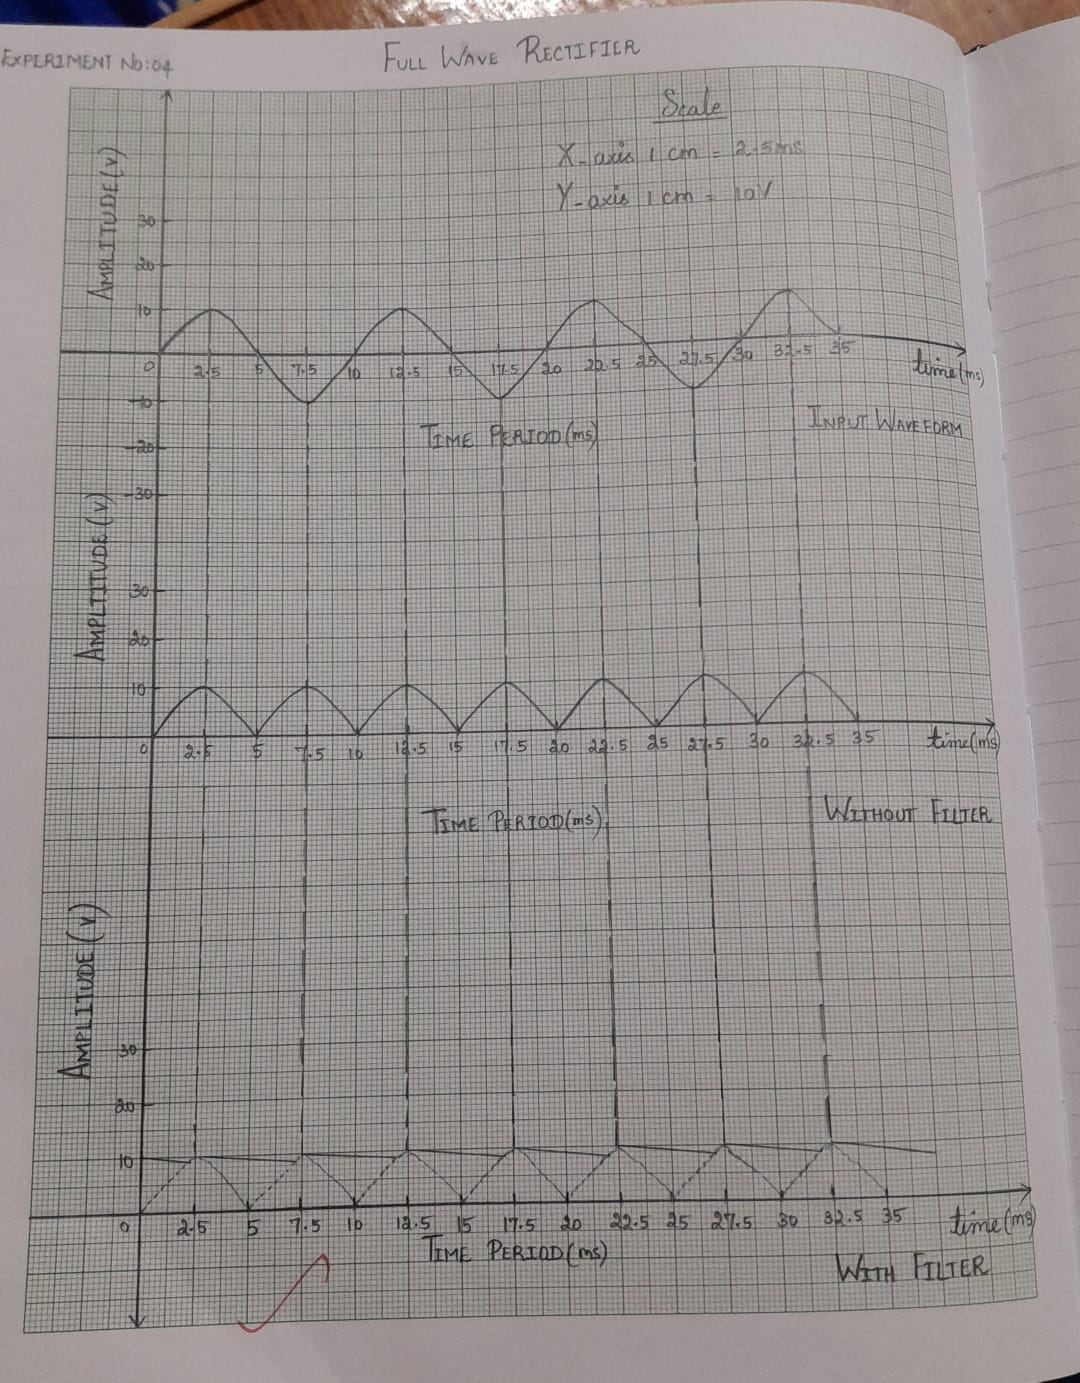 EXPERIMENT No:04
FULL WAVE RECTIFIER
Scale
X-axis 1 cm = 2.5ms
Y-axis 1 cm = 10V
AMPLITUDE (V)
30
20
10
0 2.5 5 7.5 10 12.5 15 17.5 20 22.5 25 27.5 30 32.5 35 time (ms)
-10
-20
-30
TIME PERIOD (ms)
INPUT WAVEFORM
AMPLTITUDE (V)
30
20
10
0 2.5 5 7.5 10 12.5 15 17.5 20 22.5 25 27.5 30 32.5 35 time (ms)
TIME PERIOD (ms)
WITHOUT FILTER
AMPLITUDE (V)
30
20
10
0 2.5 5 7.5 10 12.5 15 17.5 20 22.5 25 27.5 30 32.5 35 time (ms)
TIME PERIOD (ms)
WITH FILTER